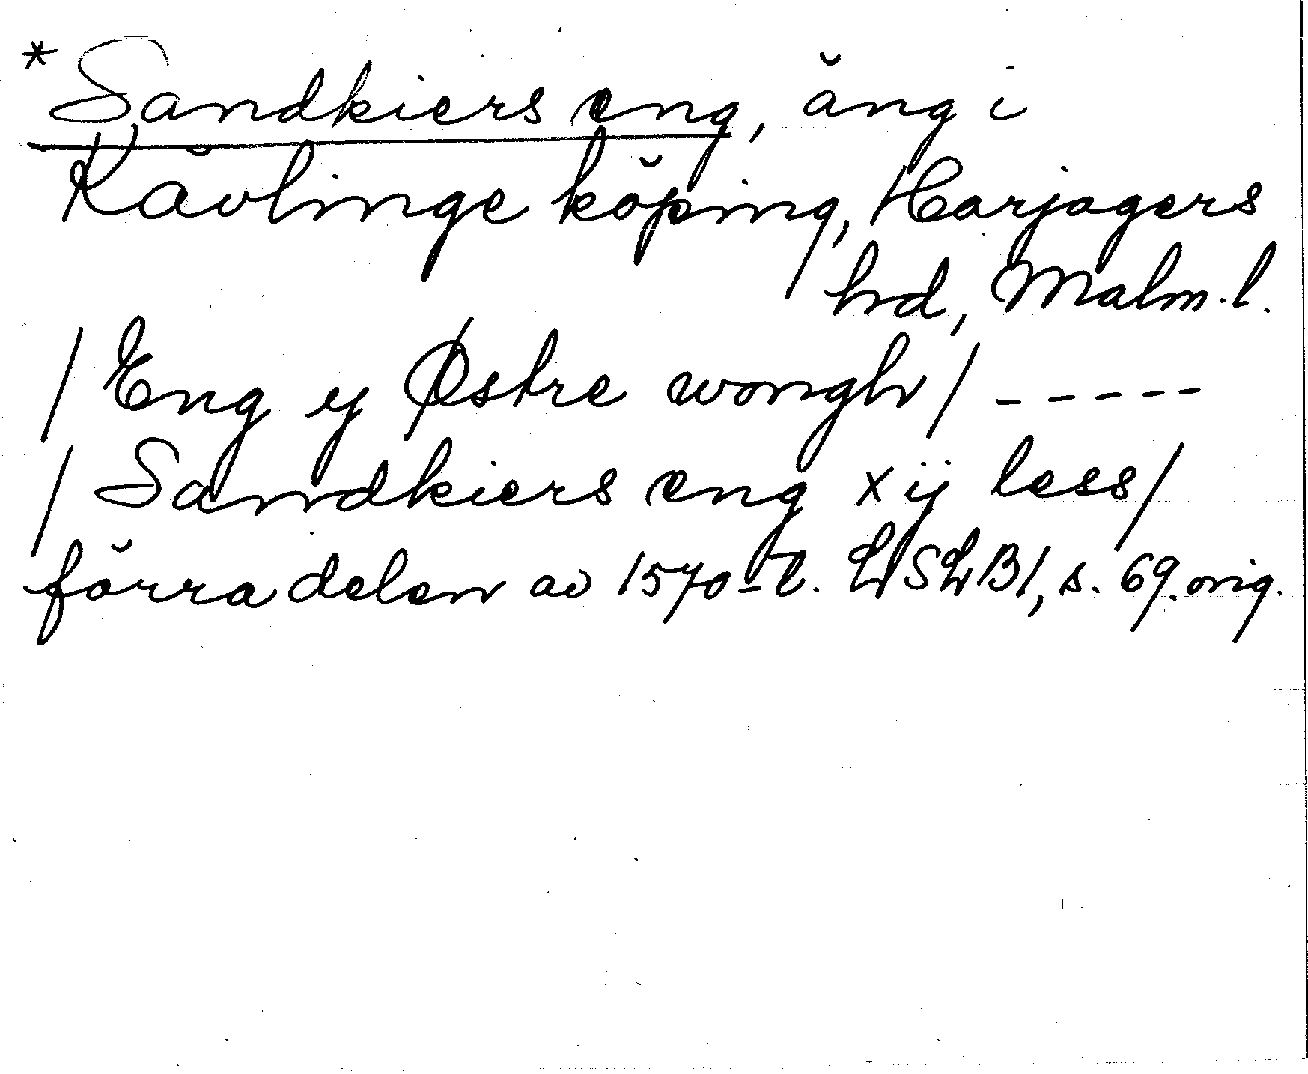 *Sandkiers eng, äng i
Kävlinge köping, Harjagers
hd, Malm.l.
/Eng y Østre wongh/ -----
/Sandkiers eng xij less/
förra delen av 1570-t. LSLB1, s. 69. orig.